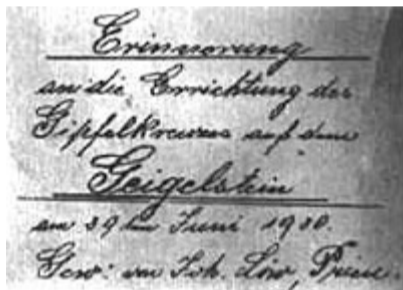 Erinnerung
an die Errichtung des
Gipfelkreuzes auf dem
Geigelstein
am 29ten Juni 1930.
Gew: von Joh. Prien.